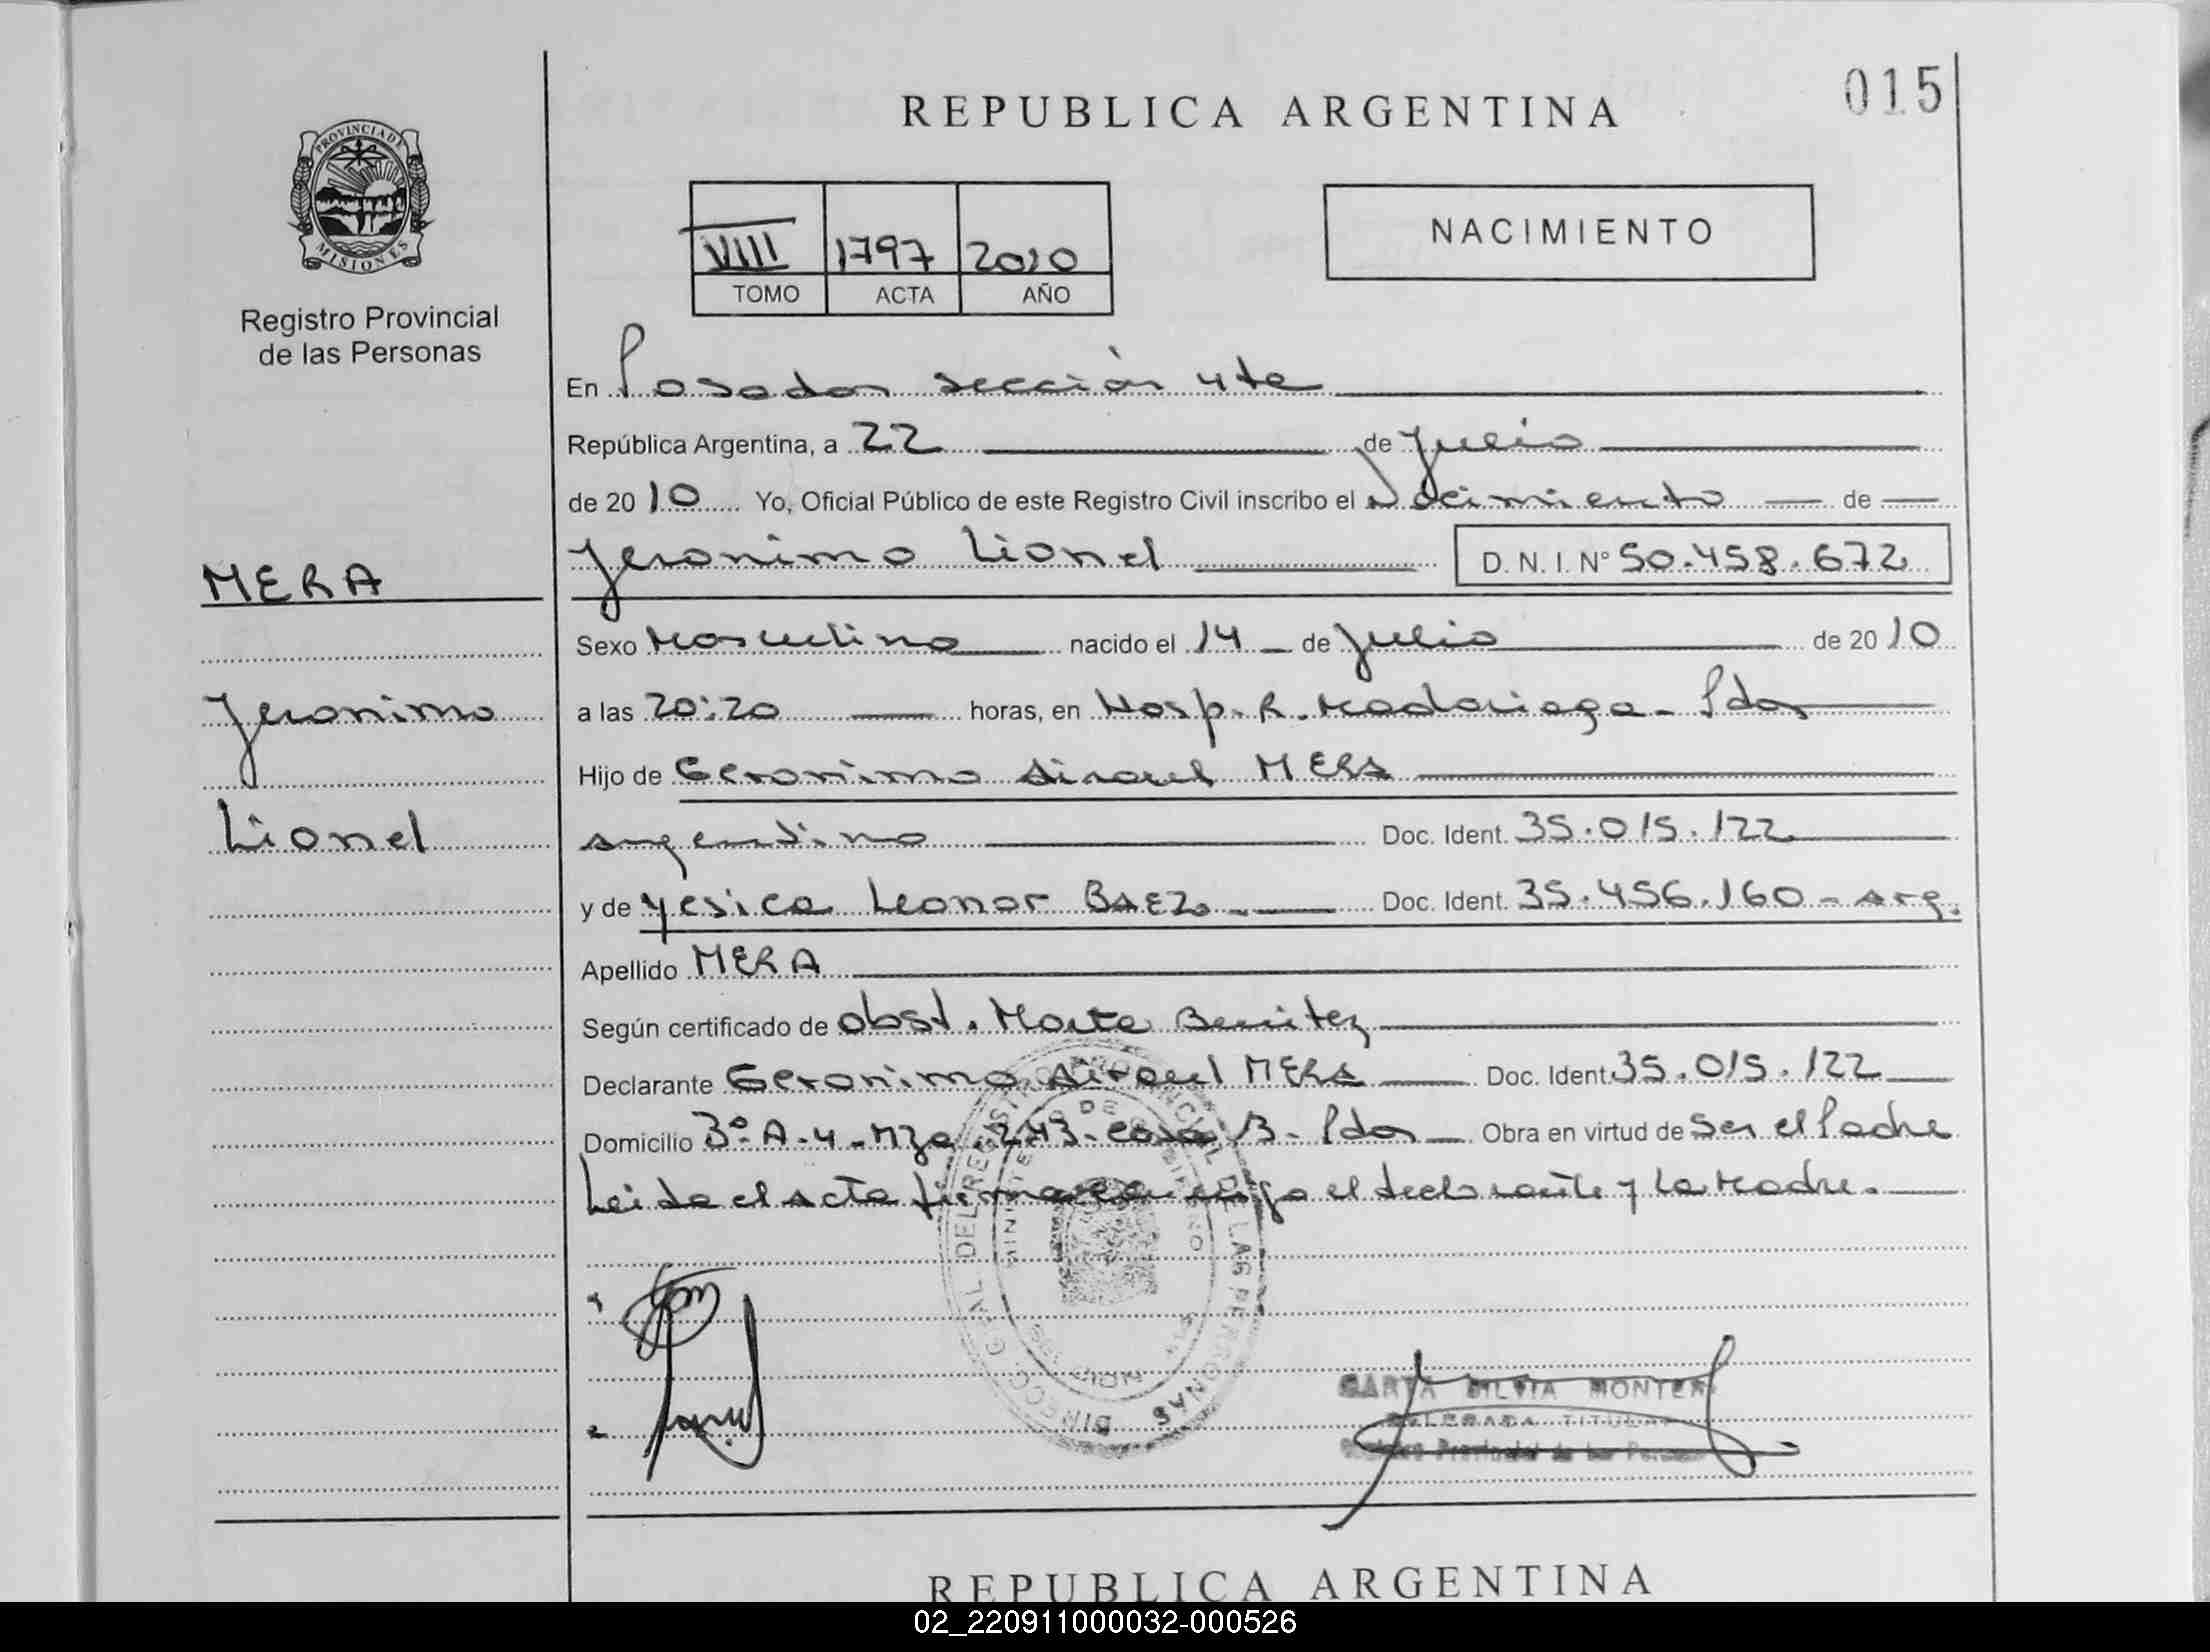 015
REPUBLICA ARGENTINA
PROVINCIA DE
MISIONES
Registro Provincial
de las Personas
VIII 1797 2010
TOMO ACTA AÑO
NACIMIENTO
En Posadas sección 4ta
República Argentina, a 22 de Julio
de 2010 Yo, Oficial Público de este Registro Civil inscribo el Nacimiento de
MERA
Jeronimo Lionel D. N. I. Nº 50.458.672
Sexo Masculino nacido el 14 de Julio de 2010
Jeronimo
a las 20:20 horas, en Hosp. R. Madariaga - Pdas
Hijo de Geronimo MERA
Lionel
argentino Doc. Ident. 35.015.122
y de Yesica Leonor BAEZ Doc. Ident. 35.456.160 - arg.
Apellido MERA
Según certificado de obst. Benitez
Declarante Geronimo MERA Doc. Ident. 35.015.122
Domicilio 3º-A-4-Mza. 243-casa 13-Pdas Obra en virtud de ser el Padre
Leida el acta firma el declarante y la Madre.
SILVIA MONTER
TITULAR
Provincial de las
REPUBLICA ARGENTINA
02_220911000032-000526